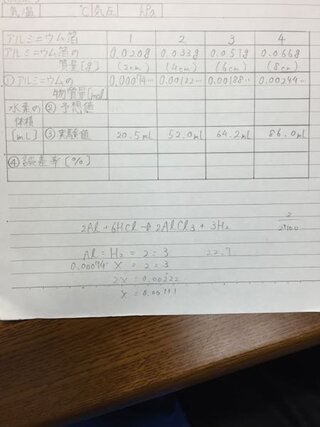 気温 ℃ 気圧 hPa
アルミニウム箔 1 2 3 4
アルミニウム箔の質量[g] 0.020g (2cm) 0.033g (4cm) 0.051g (6cm) 0.066g (8cm)
①アルミニウムの物質量[mol] 0.00074… 0.00122… 0.00188… 0.00244…
水素の体積[mL] ②予想値
③実験値 20.5mL 52.0mL 64.2mL 86.0mL
④誤差率[%]
2Al + 6HCl → 2AlCl3 + 3H2
Al = H2 = 2 : 3 22.7
0.00074 X = 2 = 3
2X = 0.00222
X = 0.00111